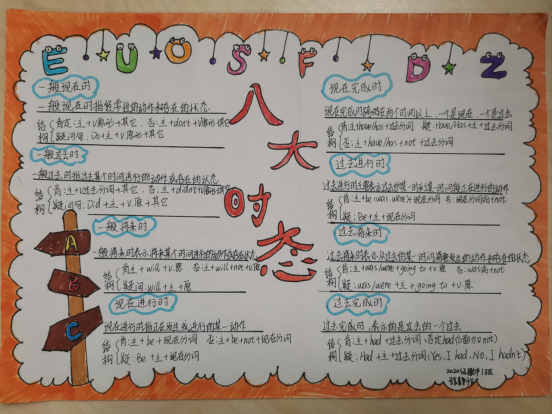 E U O S F D Z
八大时态
一般现在时
一般现在时指经常性的动作和存在的状态
结构
肯定:主+V原形+其它 否:主+don't+V原形+其它
疑问句:Do+主+V原形+其它
一般过去时
一般过去时指过去某个时间进行的动作或存在的状态
结构
肯:主+V过去分词+其它 否:主+didn't+V原形+其它
疑问句:Did+主+V原+其它
一般将来时
一般将来时表示将来某个时间进行的动作或存在的状态
结构
肯:主+will+V原 否:主+will+not+V原
疑问:will+主+原
现在进行时
现在进行时指正在发生或进行的某一动作
结构
肯:主+be+现在分词 否:主+be+not+现在分词
疑:Be+主+现在分词
A
B
C
现在完成时
现在完成时 两个时间以上,一个是现在 一个是过去
结构
肯:主+have/has+过去分词 疑:Have/Has+主+过去分词
否:主+have/has+not+过去分词
过去进行时
过去进行时主要表示过去的某一时刻某一时间段正在进行的动作
结构
肯:主+be(was.were)+现在分词 否:现在分词前+not
疑:Be+主+现在分词
过去将来时
过去将来时表示从过去的某一时间 的动作和存在的状态
结构
肯:主+was/were+going to+V原 否:was后+not
疑:was/were+主+going to+V原
过去完成时
过去完成时,表示的是过去的一个过去
结构
肯:主+had+过去分词(否定had后面加not)
疑:Had+主+过去分词(Yes, I had. No, I hadn't)
2020级